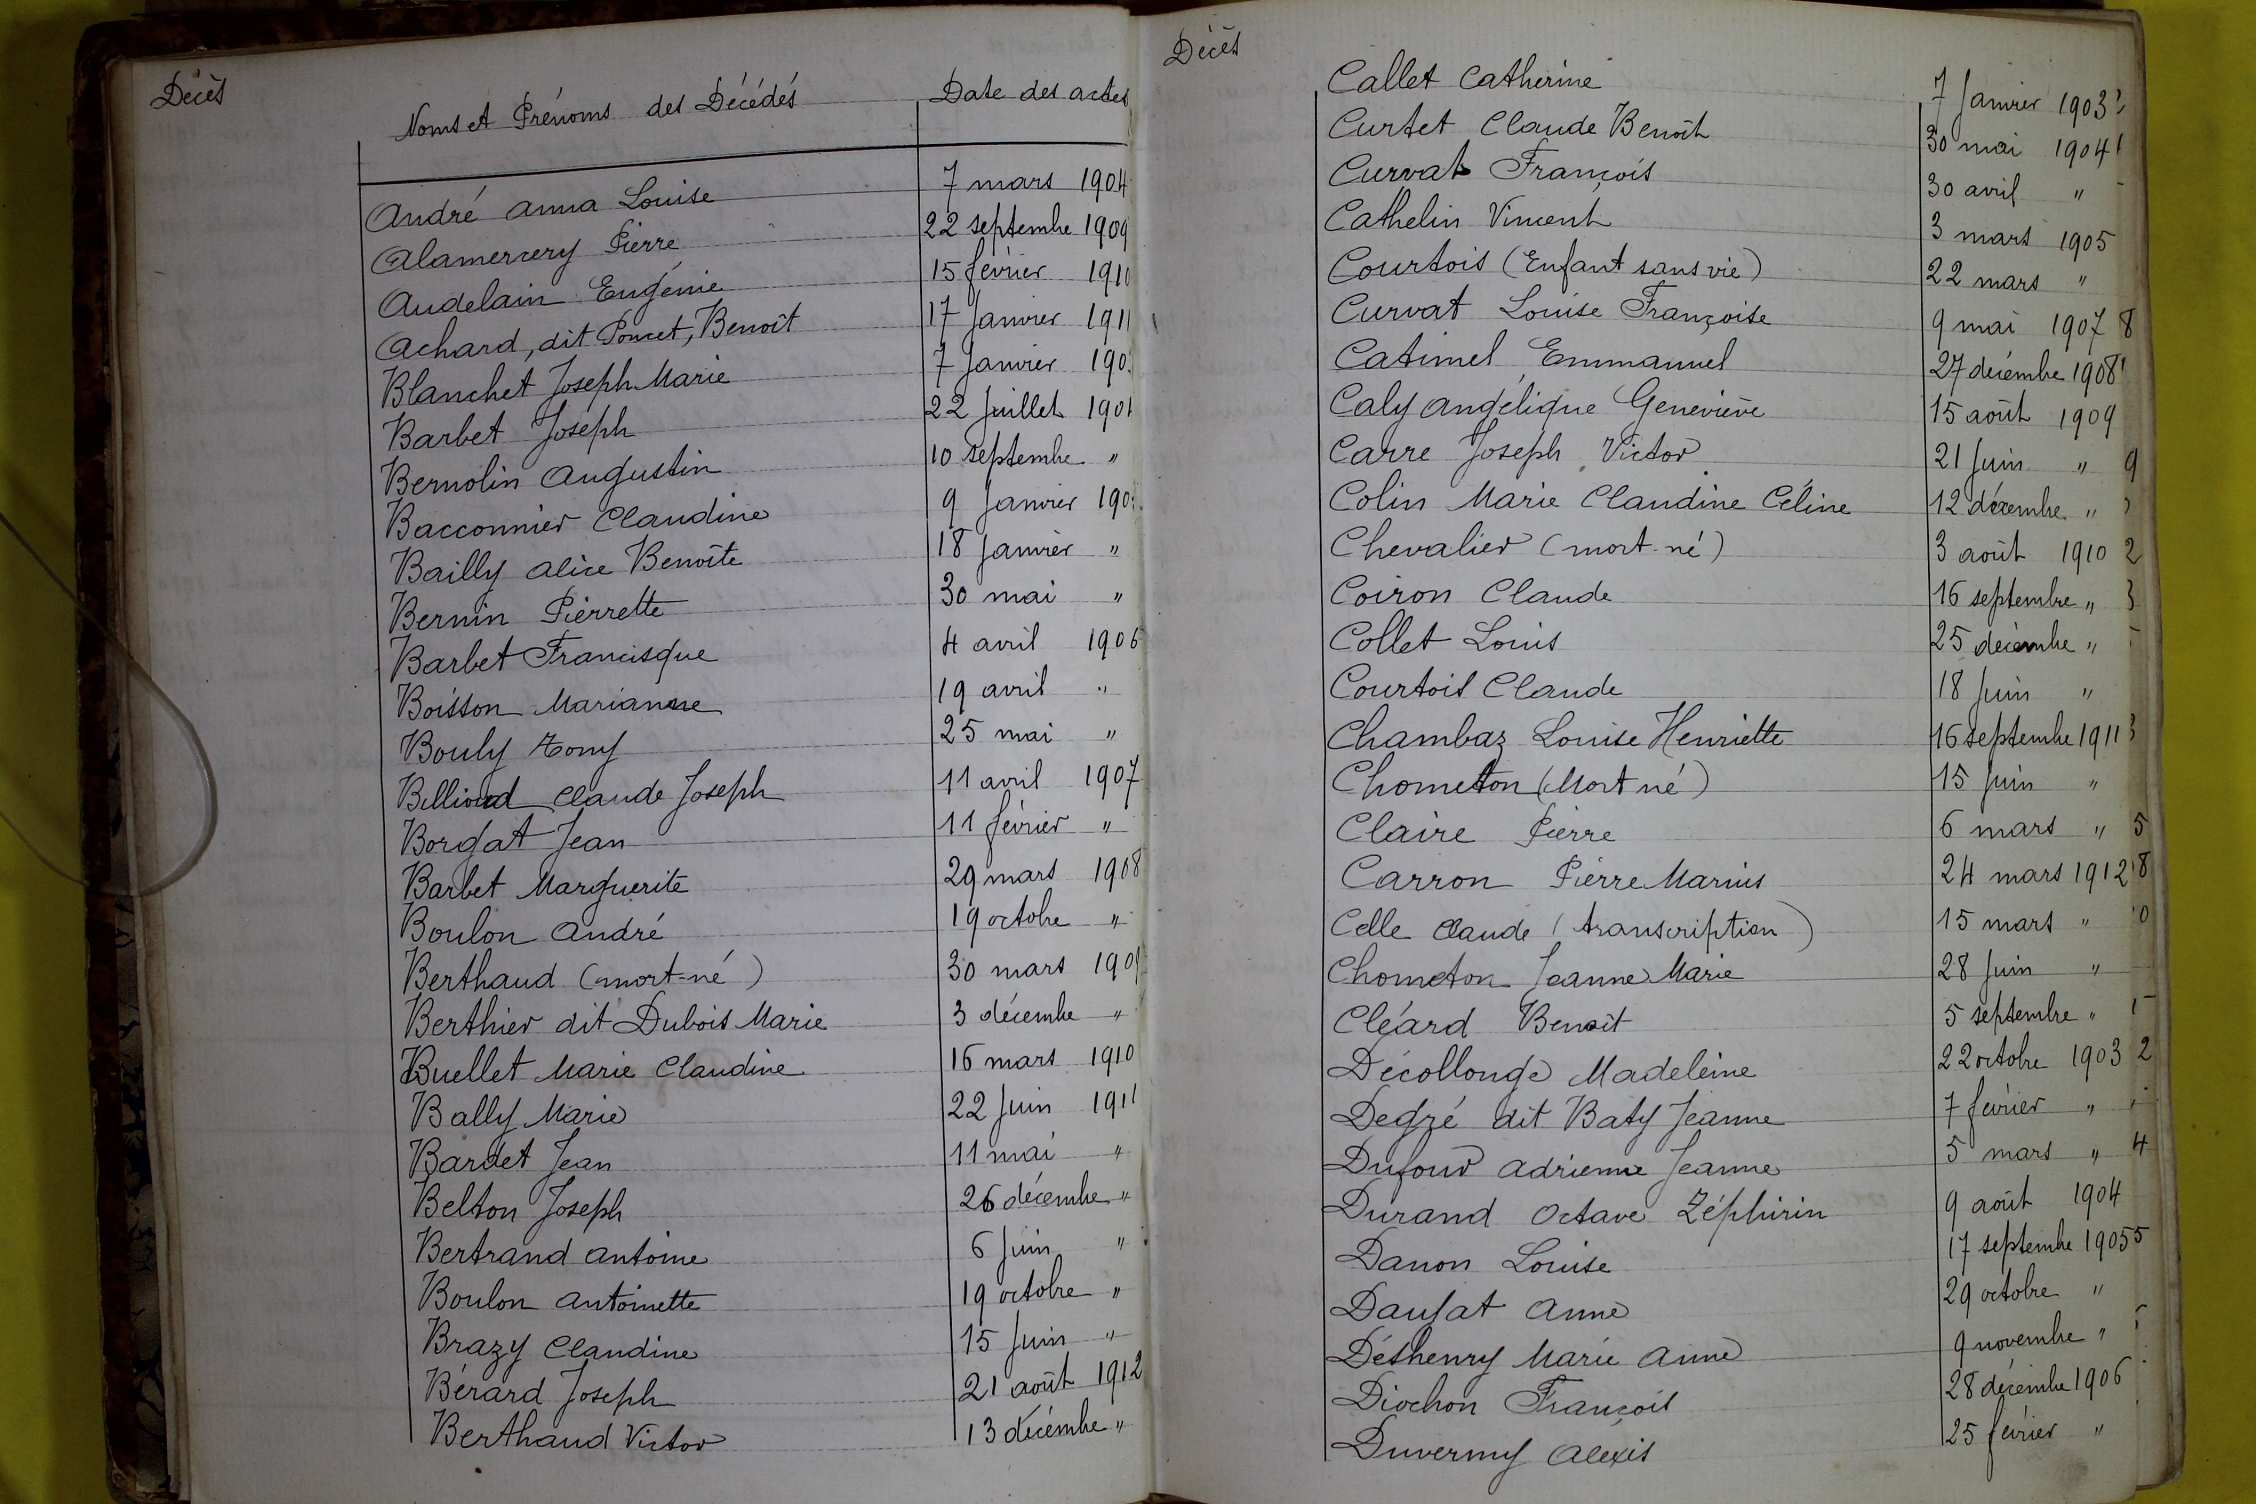 Décès
Noms et Prénoms des Décédés Date des actes
André Anna Louise 7 mars 1904
Alamercery Pierre 22 septembre 1909
Audelain Eugénie 15 février 1910
Achard, dit Poncet, Benoît 17 Janvier 1911
Blanchet Joseph Marie 7 Janvier 190
Barbet Joseph 22 Juillet 190
Bernolin Augustin 10 septembre "
Bacconnier Claudine 9 Janvier 190
Bailly Alice Benoîte 18 Janvier "
Bernin Pierrette 30 mai "
Barbet Francisque 4 avril 1906
Boisson Marianne 19 avril "
Bouly Tony 25 mai "
Billioud Claude Joseph 11 avril 1907
Borgat Jean 11 février "
Barbet Marguerite 29 mars 1908
Boulon André 19 octobre "
Berthaud (mort-né) 30 mars 1909
Berthier dit Dubois Marie 3 décembre "
Buellet Marie Claudine 16 mars 1910
Bally Marie 22 Juin 1911
Bardet Jean 11 mai "
Belton Joseph 26 décembre "
Bertrand Antoine 6 Juin "
Boulon Antoinette 19 octobre "
Brazy Claudine 15 Juin "
Bérard Joseph 21 août 1912
Berthaud Victor 13 décembre "
Décès
Callet Catherine 7 Janvier 1903
Curtet Claude Benoît 30 mai 1904
Curvat François 30 avril "
Cathelin Vincent 3 mars 1905
Courtois (Enfant sans vie) 22 mars "
Curvat Louise Françoise 9 mai 1907
Catimel Emmanuel 27 décembre 1908
Caly Angélique Geneviève 15 août 1909
Carre Joseph Victor 21 Juin "
Colin Marie Claudine Céline 12 décembre "
Chevalier (mort-né) 3 août 1910
Coiron Claude 16 septembre "
Collet Louis 25 décembre "
Courtois Claude 18 Juin "
Chambaz Louise Henriette 16 septembre 1911
Chometon (Mort né) 15 Juin "
Claire Pierre 6 mars "
Carron Pierre Marius 24 mars 1912
Celle Claude (transcription) 15 mars "
Chometon Jeanne Marie 28 Juin "
Cléard Benoît 5 septembre "
Décollonge Madeleine 22 octobre 1903
Degré dit Baty Jeanne 7 février "
Dufour Adrienne Jeanne 5 mars "
Durand Octave Zéphirin 9 août 1904
Danon Louise 17 septembre 1905
Daujat Anne 29 octobre "
Déshenry Marie Anne 9 novembre "
Diochon François 28 décembre 1906
Duverny Alexis 25 février "